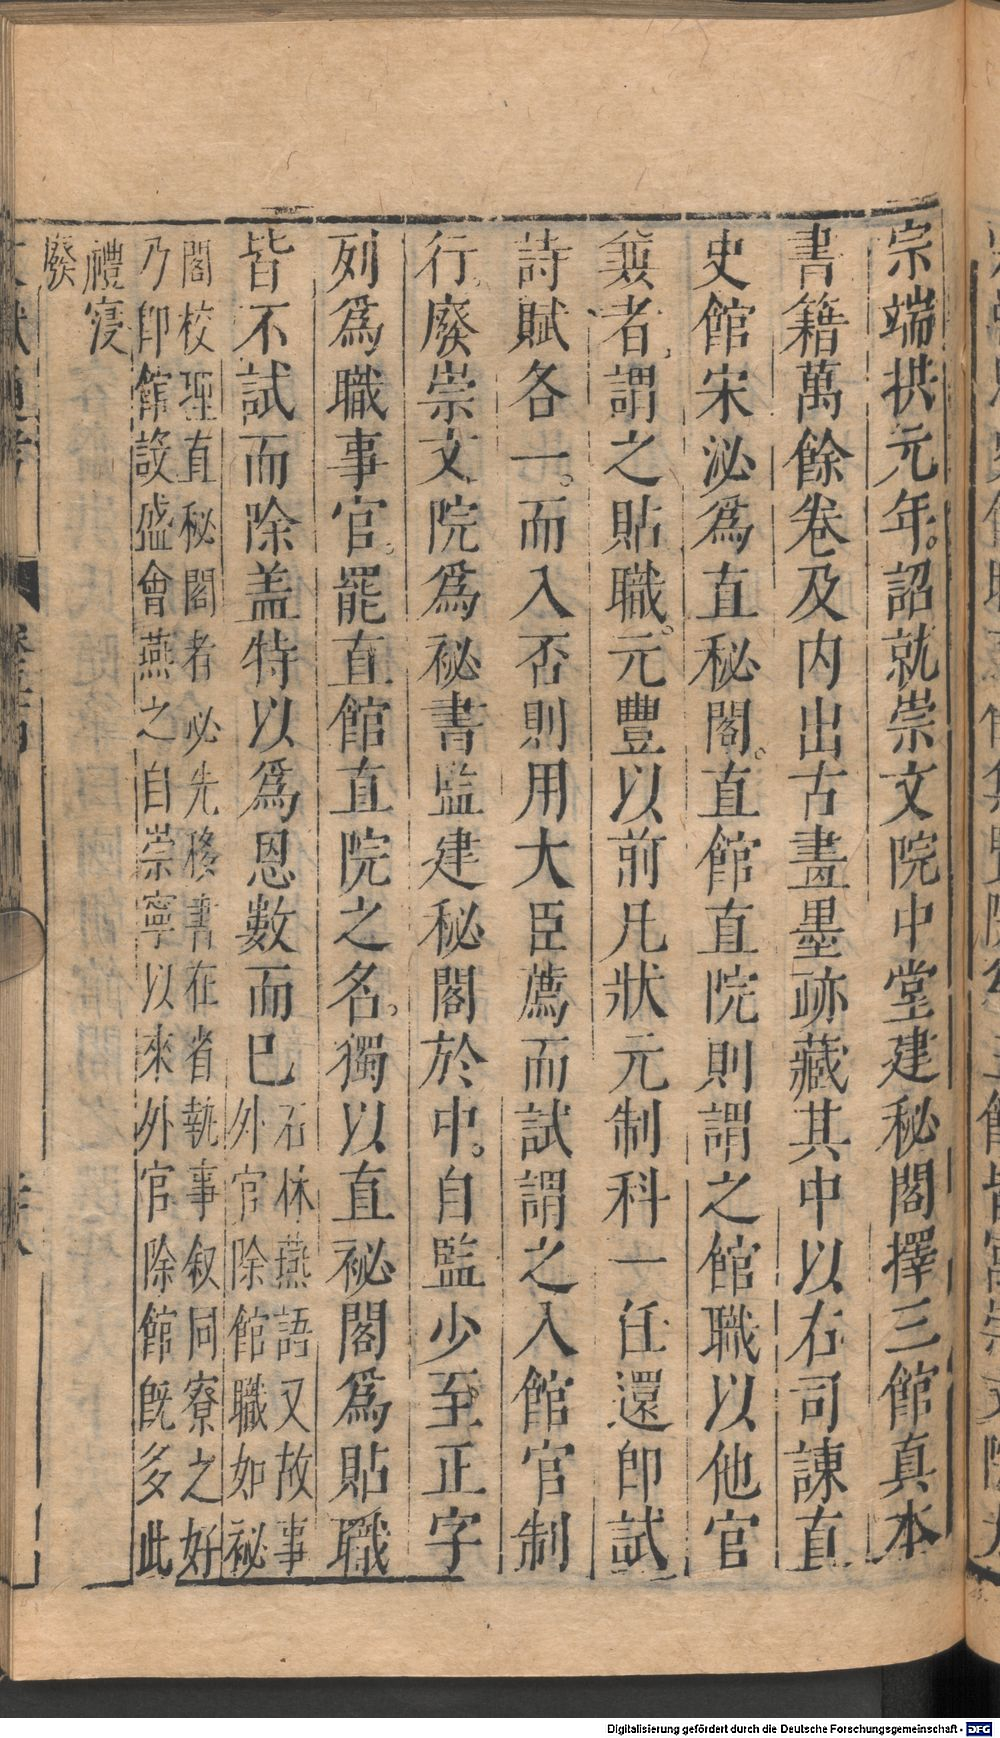 宗端拱元年。詔就崇文院中堂建秘閣擇三館真本
書籍萬餘卷及内出古畫墨跡藏其中以右司諫直
史館宋泌爲直秘閣。直館直院則謂之館職以他官
兼者謂之貼職。元豐以前凡狀元制科一任還即試
詩賦各一。而入否則用大臣薦而試謂之入館官制
行廢崇文院爲祕書監建秘閣於中。自監少至正字
列爲職事官。罷直館直院之名。獨以直祕閣爲貼職
皆不試而除盖特以爲恩數而巳
石林燕語又故事
外官除館職如祕
閣校理直秘閣者必先移書在省執事叙同寮之好
乃即館設盛會燕之自崇寧以來外官除館既多此
禮寖
廢
文獻通考
Digitalisierung gefördert durch die Deutsche Forschungsgemeinschaft - DFG